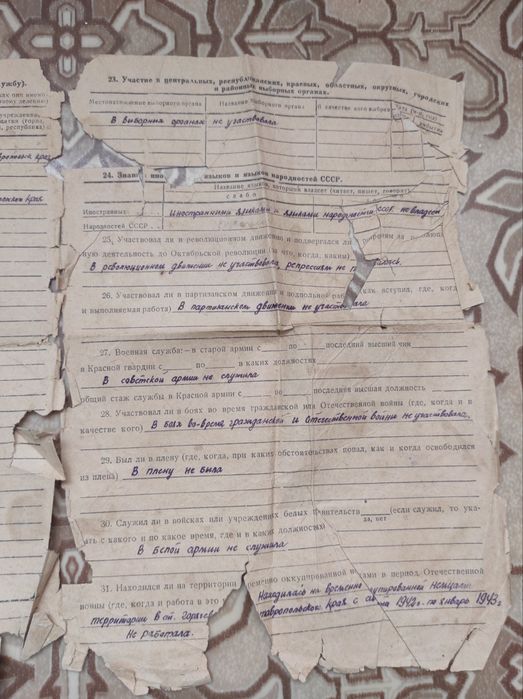 лужбу).
23. Участие в центральных, республиканских, краевых, областных, окружных, городских
и районных выборных органах.
Местонахождение выборного органа
Название выборного органа
В качестве кого выбран
В выборных органах не участвовала
24. языков и языков народностей СССР.
Название языков, которыми владеет (читает, пишет, говорит)
слабо
Иностранных
Народностей СССР
Иностранными языками и языками народностей СССР не владею
25. Участвовал ли в революционном движении и подвергался ли за
ную деятельность до Октябрьской революции (за что, когда, каким)
В революционном движении не участвовала, репрессиям не
26. Участвовал ли в партизанском движении и подпольной как вступил, где, когд
и выполняемая работа) В партизанском движении не участвовала
27. Военная служба: – в старой армии с по последний высший чин
в Красной гвардии с по в каких должностях
В советской армии не служила
общий стаж службы в Красной армии с по последняя высшая должность
28. Участвовал ли в боях во время гражданской или Отечественной войны (где, когда и в
качестве кого) В боях во время гражданской и отечественной войны не участвовала
29. Был ли в плену (где, когда, при каких обстоятельствах попал, как и когда освободился
из плена) В плену не была
30. Служил ли в войсках или учреждениях белых правительств (если служил, то ука-
да, нет
зать с какого и по какое время, где и в каких должностях)
В белой армии не служила
31. Находился ли на территории временно оккупированной в период Отечественной
войны (где, когда и работа в это
Находилась на временно оккупированной немцами
территории в ст.
Ставропольского края с 1942 г. по январь 1943 г
Не работала.